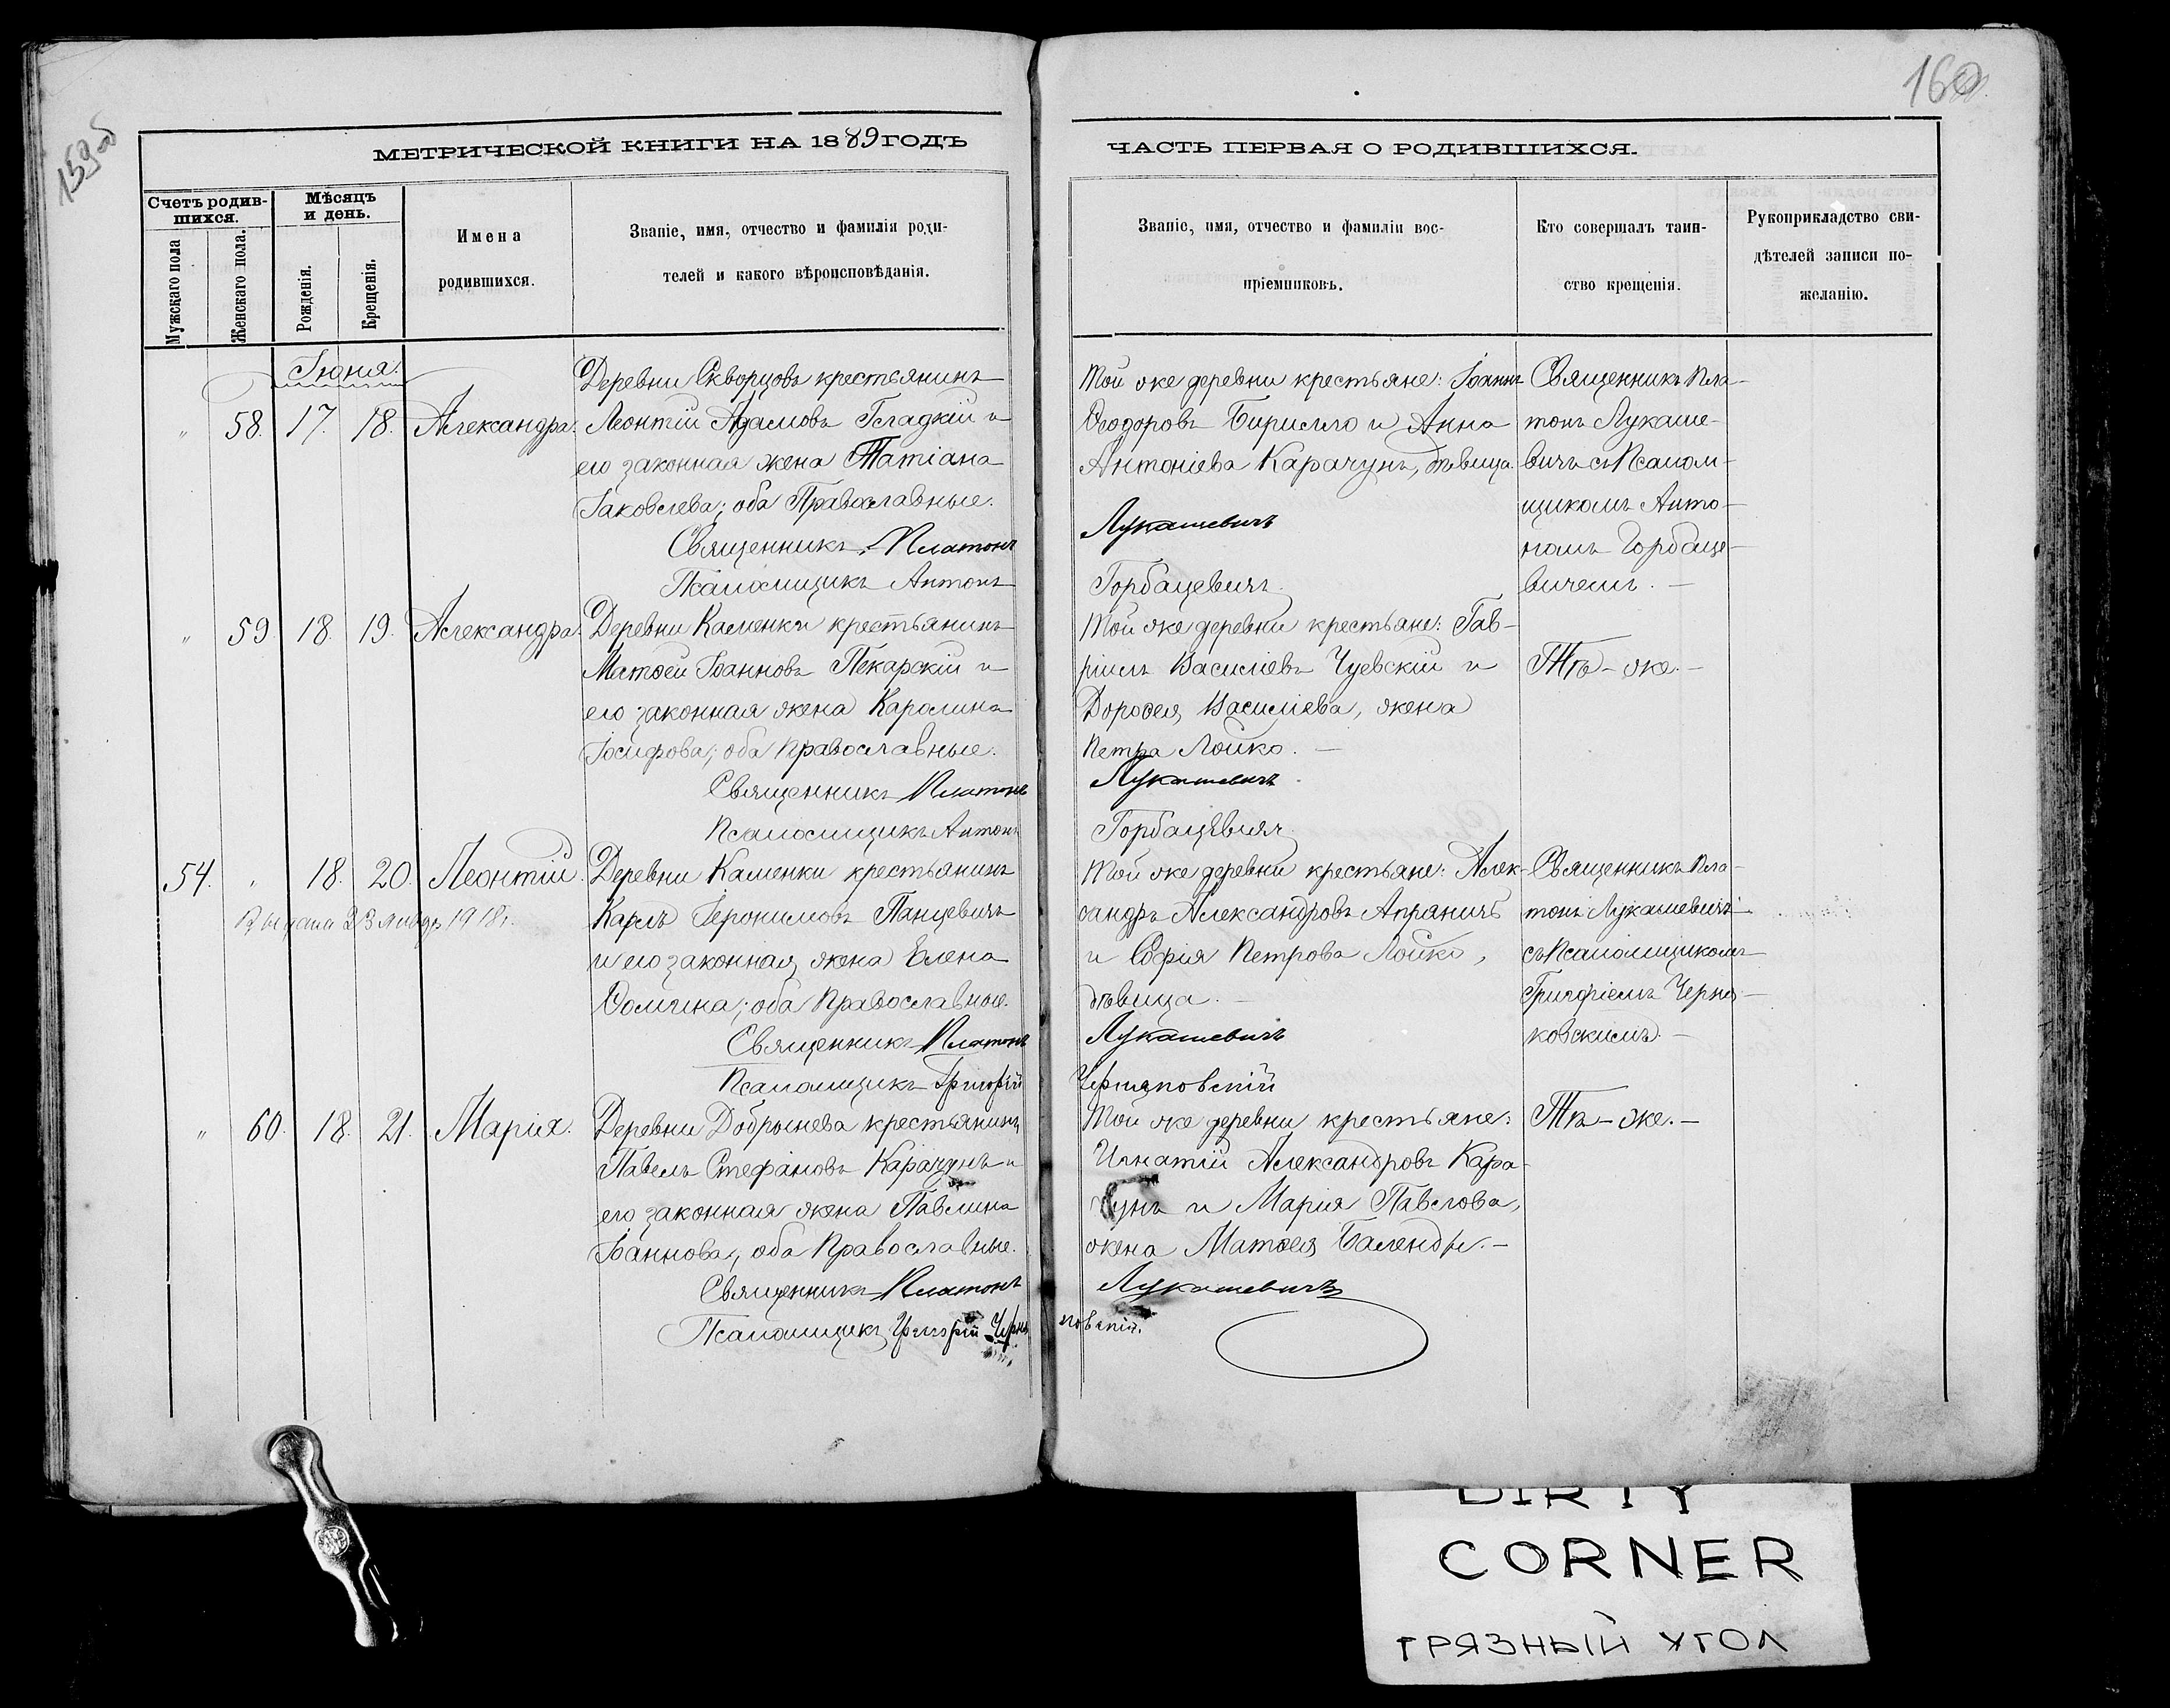 159об
160
МЕТРИЧЕСКОЙ КНИГИ НА 1889 ГОДЪ
Счетъ родив-
шихся.
Мужскаго пола
Женскаго пола.
Мѣсяцъ
и день.
Рожденія.
Крещенія.
Имена
родившихся.
Званіе, имя, отчество и фамилія роди-
телей и какого вѣроисповѣданія.
Іюня.
" 58. 17. 18. Александра.
Деревни Скворцовъ крестьянинъ
Леонтій Адамовъ Гладкій и
его законная жена Татіана
Іаковлева; оба Православные.
Священникъ Платонъ
Псаломщикъ Антонъ
" 59 18. 19. Александра.
Деревни Каменки крестьянинъ
Матѳей Іоанновъ Пекарскій и
его законная жена Каролина
Іосифова; оба Православные.
Священникъ Платонъ
Псаломщикъ Антонъ
54. " 18. 20. Леонтій.
23 январ 1918г.
Деревни Каменки крестьянинъ
Карлъ Іеронимовъ Панцевичъ
и его законная жена Елена
Ѳомина; оба Православные.
Священникъ Платонъ
Псаломщикъ Григорій
" 60. 18. 21. Марія.
Деревни Добрынева крестьянинъ
Павелъ Стефановъ Карачунъ и
его законная жена Павлина
Іоаннова, оба Православные.
Священникъ Платонъ
Псаломщикъ Григорій Черня
ЧАСТЬ ПЕРВАЯ О РОДИВШИХСЯ.
Званіе, имя, отчество и фамиліи вос-
пріемниковъ.
Кто совершалъ таин-
ство крещенія.
Рукоприкладство сви-
дѣтелей записи по-
желанію.
Той же деревни крестьяне: Іоаннъ
Ѳеодоровъ Бирилло и Анна
Антоніева Карачунъ, дѣвица.
Лукашевичъ
Горбацевичъ.
Священникъ Пла-
тонъ Лукаше-
вичъ съ Псалом-
щикомъ Анто-
номъ Горбаце-
вичемъ. —
Той же деревни крестьяне: Гав-
ріилъ Василіевъ Чуевскій и
Дороѳея Василіева, жена
Петра Лойко. —
Лукашевичъ.
Горбацевичъ
Тѣ-же. —
Той же деревни крестьяне: Алек-
сандръ Александровъ Апраничъ
и Софія Петрова Лойко,
дѣвица. —
Лукашевичъ
Черняковскій
Священникъ Пла-
тонъ Лукашевичъ
съ Псаломщикомъ
Григоріемъ Черня-
ковскимъ. —
Той же деревни крестьяне:
Игнатій Александровъ Кара-
чунъ и Марія Павлова,
жена Матѳея Баленды. —
Лукашевичъ
ковскій.
Тѣ-же. —
DIRTY
CORNER
ГРЯЗНЫЙ УГОЛ